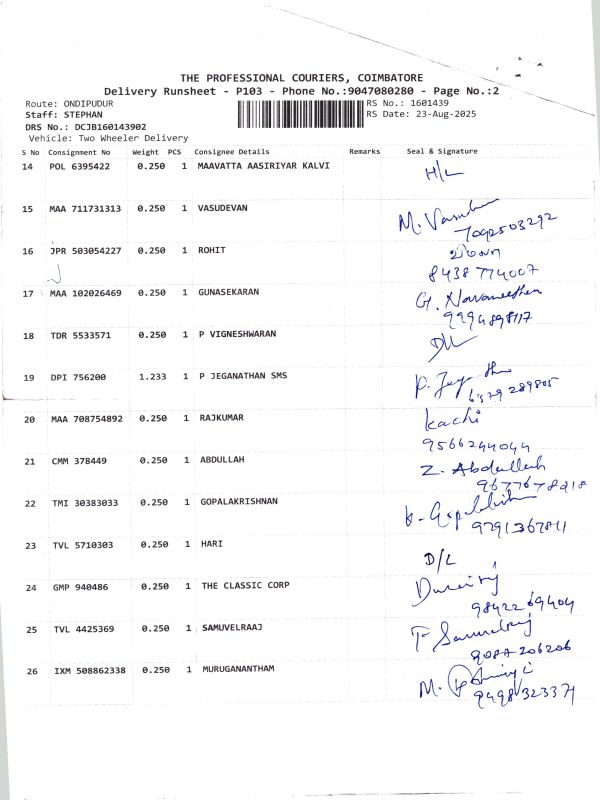 THE PROFESSIONAL COURIERS, COIMBATORE
Delivery Runsheet - P103 - Phone No.:9047080280 - Page No.:2
Route: ONDIPUDUR
Staff: STEPHAN
DRS No.: DCJB160143902
Vehicle: Two Wheeler Delivery
RS No.: 1601439
RS Date: 23-Aug-2025
S No Consignment No Weight PCS Consignee Details Remarks Seal & Signature
14 POL 6395422 0.250 1 MAAVATTA AASIRIYAR KALVI H/L
15 MAA 711731313 0.250 1 VASUDEVAN M. Vasudevan
7092503292
16 JPR 503054227 0.250 1 ROHIT
8438774007
17 MAA 102026469 0.250 1 GUNASEKARAN G. Navaneethan
9994898117
18 TDR 5533571 0.250 1 P VIGNESHWARAN D/L
19 DPI 756200 1.233 1 P JEGANATHAN SMS
6379289805
20 MAA 708754892 0.250 1 RAJKUMAR Kachi
9566244044
21 CMM 378449 0.250 1 ABDULLAH Z. Abdullah
9677678918
22 TMI 30383033 0.250 1 GOPALAKRISHNAN
9791367811
23 TVL 5710303 0.250 1 HARI D/L
24 GMP 940486 0.250 1 THE CLASSIC CORP Durairaj
9842269404
25 TVL 4425369 0.250 1 SAMUVELRAAJ T. Samuvelraj
26 IXM 508862338 0.250 1 MURUGANANTHAM